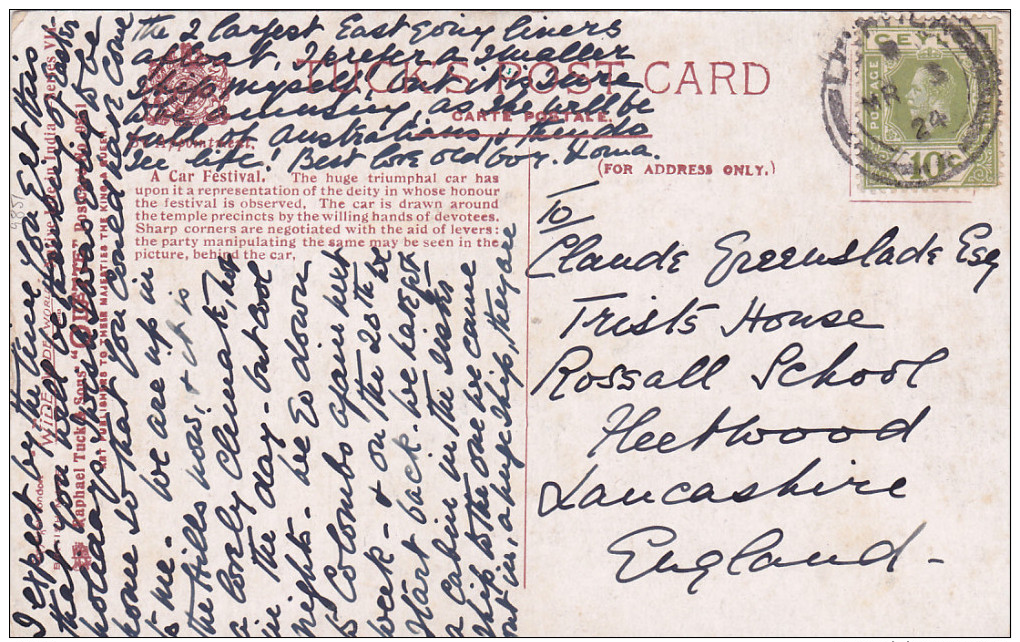 I expect by the time you get this
that you will be thinking of Easter
holidays, I wish I was going to be
home so that you could have come
to me. We are up in
the hills now, & it is
a lovely climate, hot
in the day - but cool
nights. We go down
to Colombo again next
week - & on the 25th we
start back. We have kept
a cabin in the sister
ship to the one we came
out in, a huge ship, they are
the 2 largest East going liners
afloat, I prefer a smaller
ship myself, but it is sure
to be amusing, as she will be
full of Australians, & they do
see life! Best love old boy.
TUCK'S POST CARD
CARTE POSTALE.
By Appointment.
(FOR ADDRESS ONLY.)
A Car Festival. The huge triumphal car has
upon it a representation of the deity in whose honour
the festival is observed. The car is drawn around
the temple precincts by the willing hands of devotees.
Sharp corners are negotiated with the aid of levers:
the party manipulating the same may be seen in the
picture, behind the car.
To
Claude Greenslade Esq
Trists House
Rossall School
Fleetwood
Lancashire
England
Raphael Tuck & Sons' "OILETTE" Postcard No.
ART PUBLISHERS TO THEIR MAJESTIES THE KING & QUEEN.
WIDE-WIDE-WORLD
Native Life in India Series VII
CEYLON
POSTAGE
10c
24